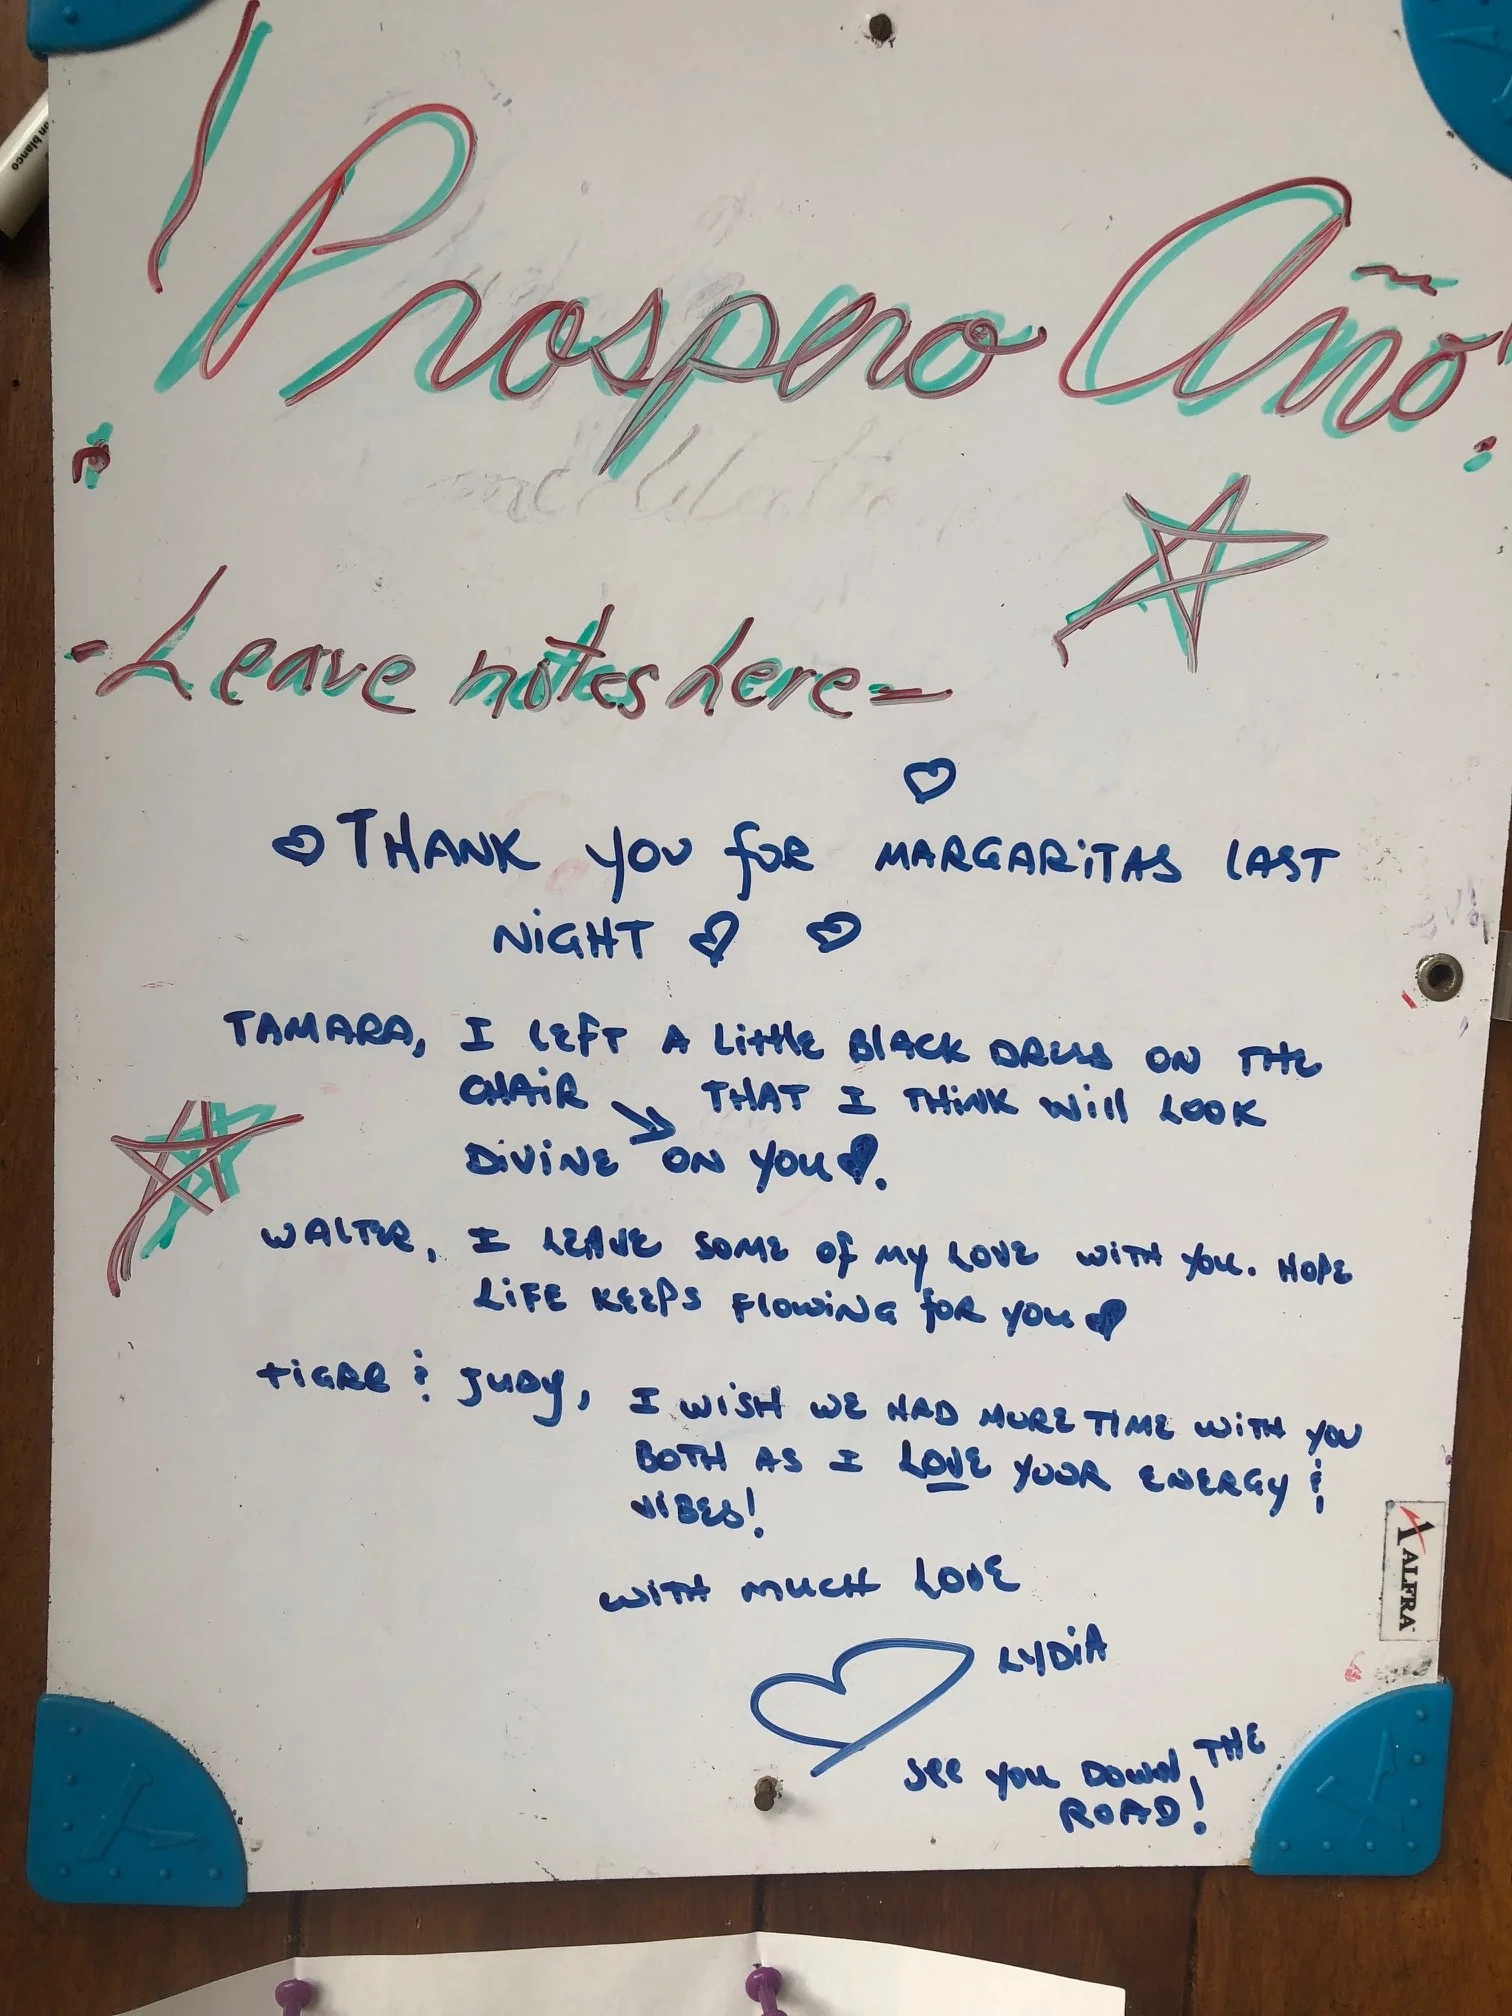 ¡Prospero Año!
-Leave notes here-
THANK YOU FOR MARGARITAS LAST
NIGHT
TAMARA, I LEFT A LITTLE BLACK DRESS ON THE
CHAIR THAT I THINK WILL LOOK
DIVINE ON YOU.
WALTER, I LEAVE SOME OF MY LOVE WITH YOU. HOPE
LIFE KEEPS FLOWING FOR YOU
TIGRE & JUDY, I WISH WE HAD MORE TIME WITH YOU
BOTH AS I LOVE YOUR ENERGY &
VIBES!
WITH MUCH LOVE
LYDIA
SEE YOU DOWN THE
ROAD!
ALFRA
on blanco